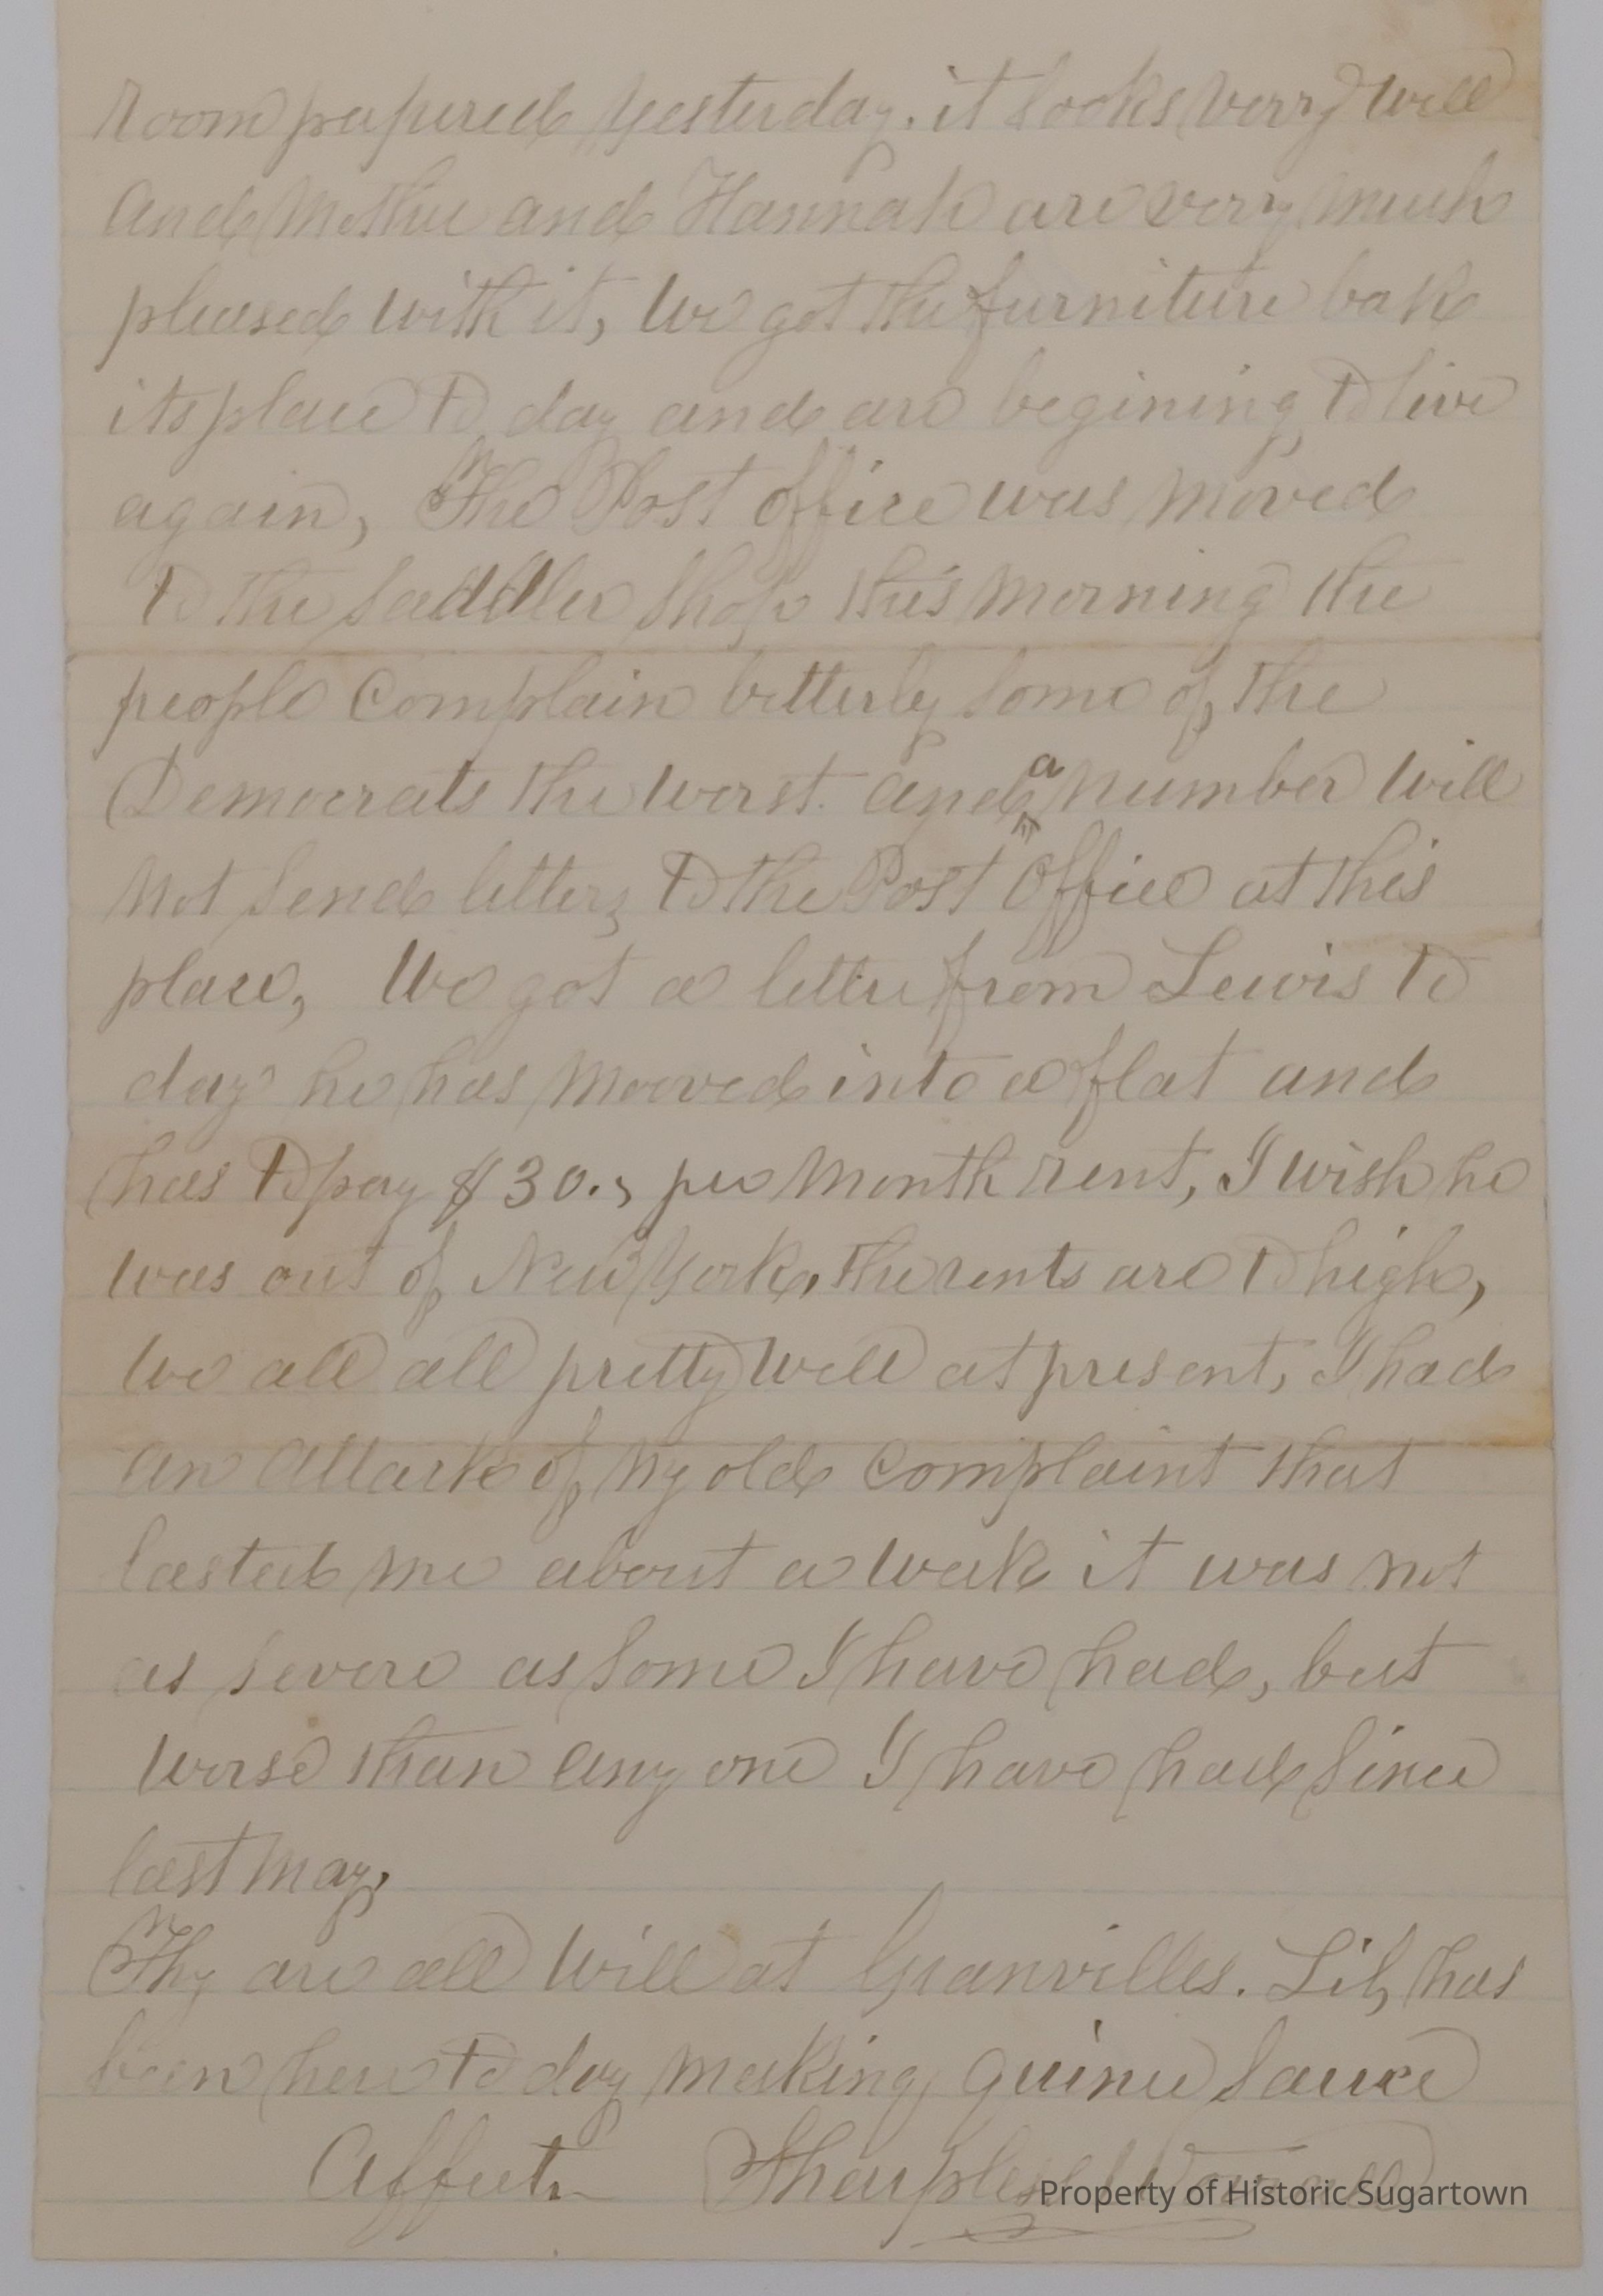 room papered yesterday. it looks verry well
and Mother and Hannah are verry much
pleased with it, We got the furniture bak
its place to day and are begining to live
again, The Post office was moved
to the Saddler Shop this morning the
people Complain bitterly Some of the
Democrats the worst. and a number will
not Send letters to the Post Office at this
place, We got a letter from Lewis to
day he has mooved into a flat and
has to pay $30., per month rent, I wish he
was out of New York, the rents are to high,
we all all pretty well at present, I had
an attack of my old Complaint that
lasted me about a week it was not
as Severe as Some I have had, but
worse than any one I have had Since
last May,
Thy are all well at Granvilles. Lib, has
been here to day making quince Sauce
Affect. Sharpless
Property of Historic Sugartown